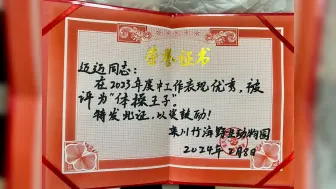 荣誉证书
迈迈同志：
在2023年度中工作表现优秀，被
评为“体操王子”。
特发此证，以资鼓励！
栾川竹海野生动物园
2024年2月8日